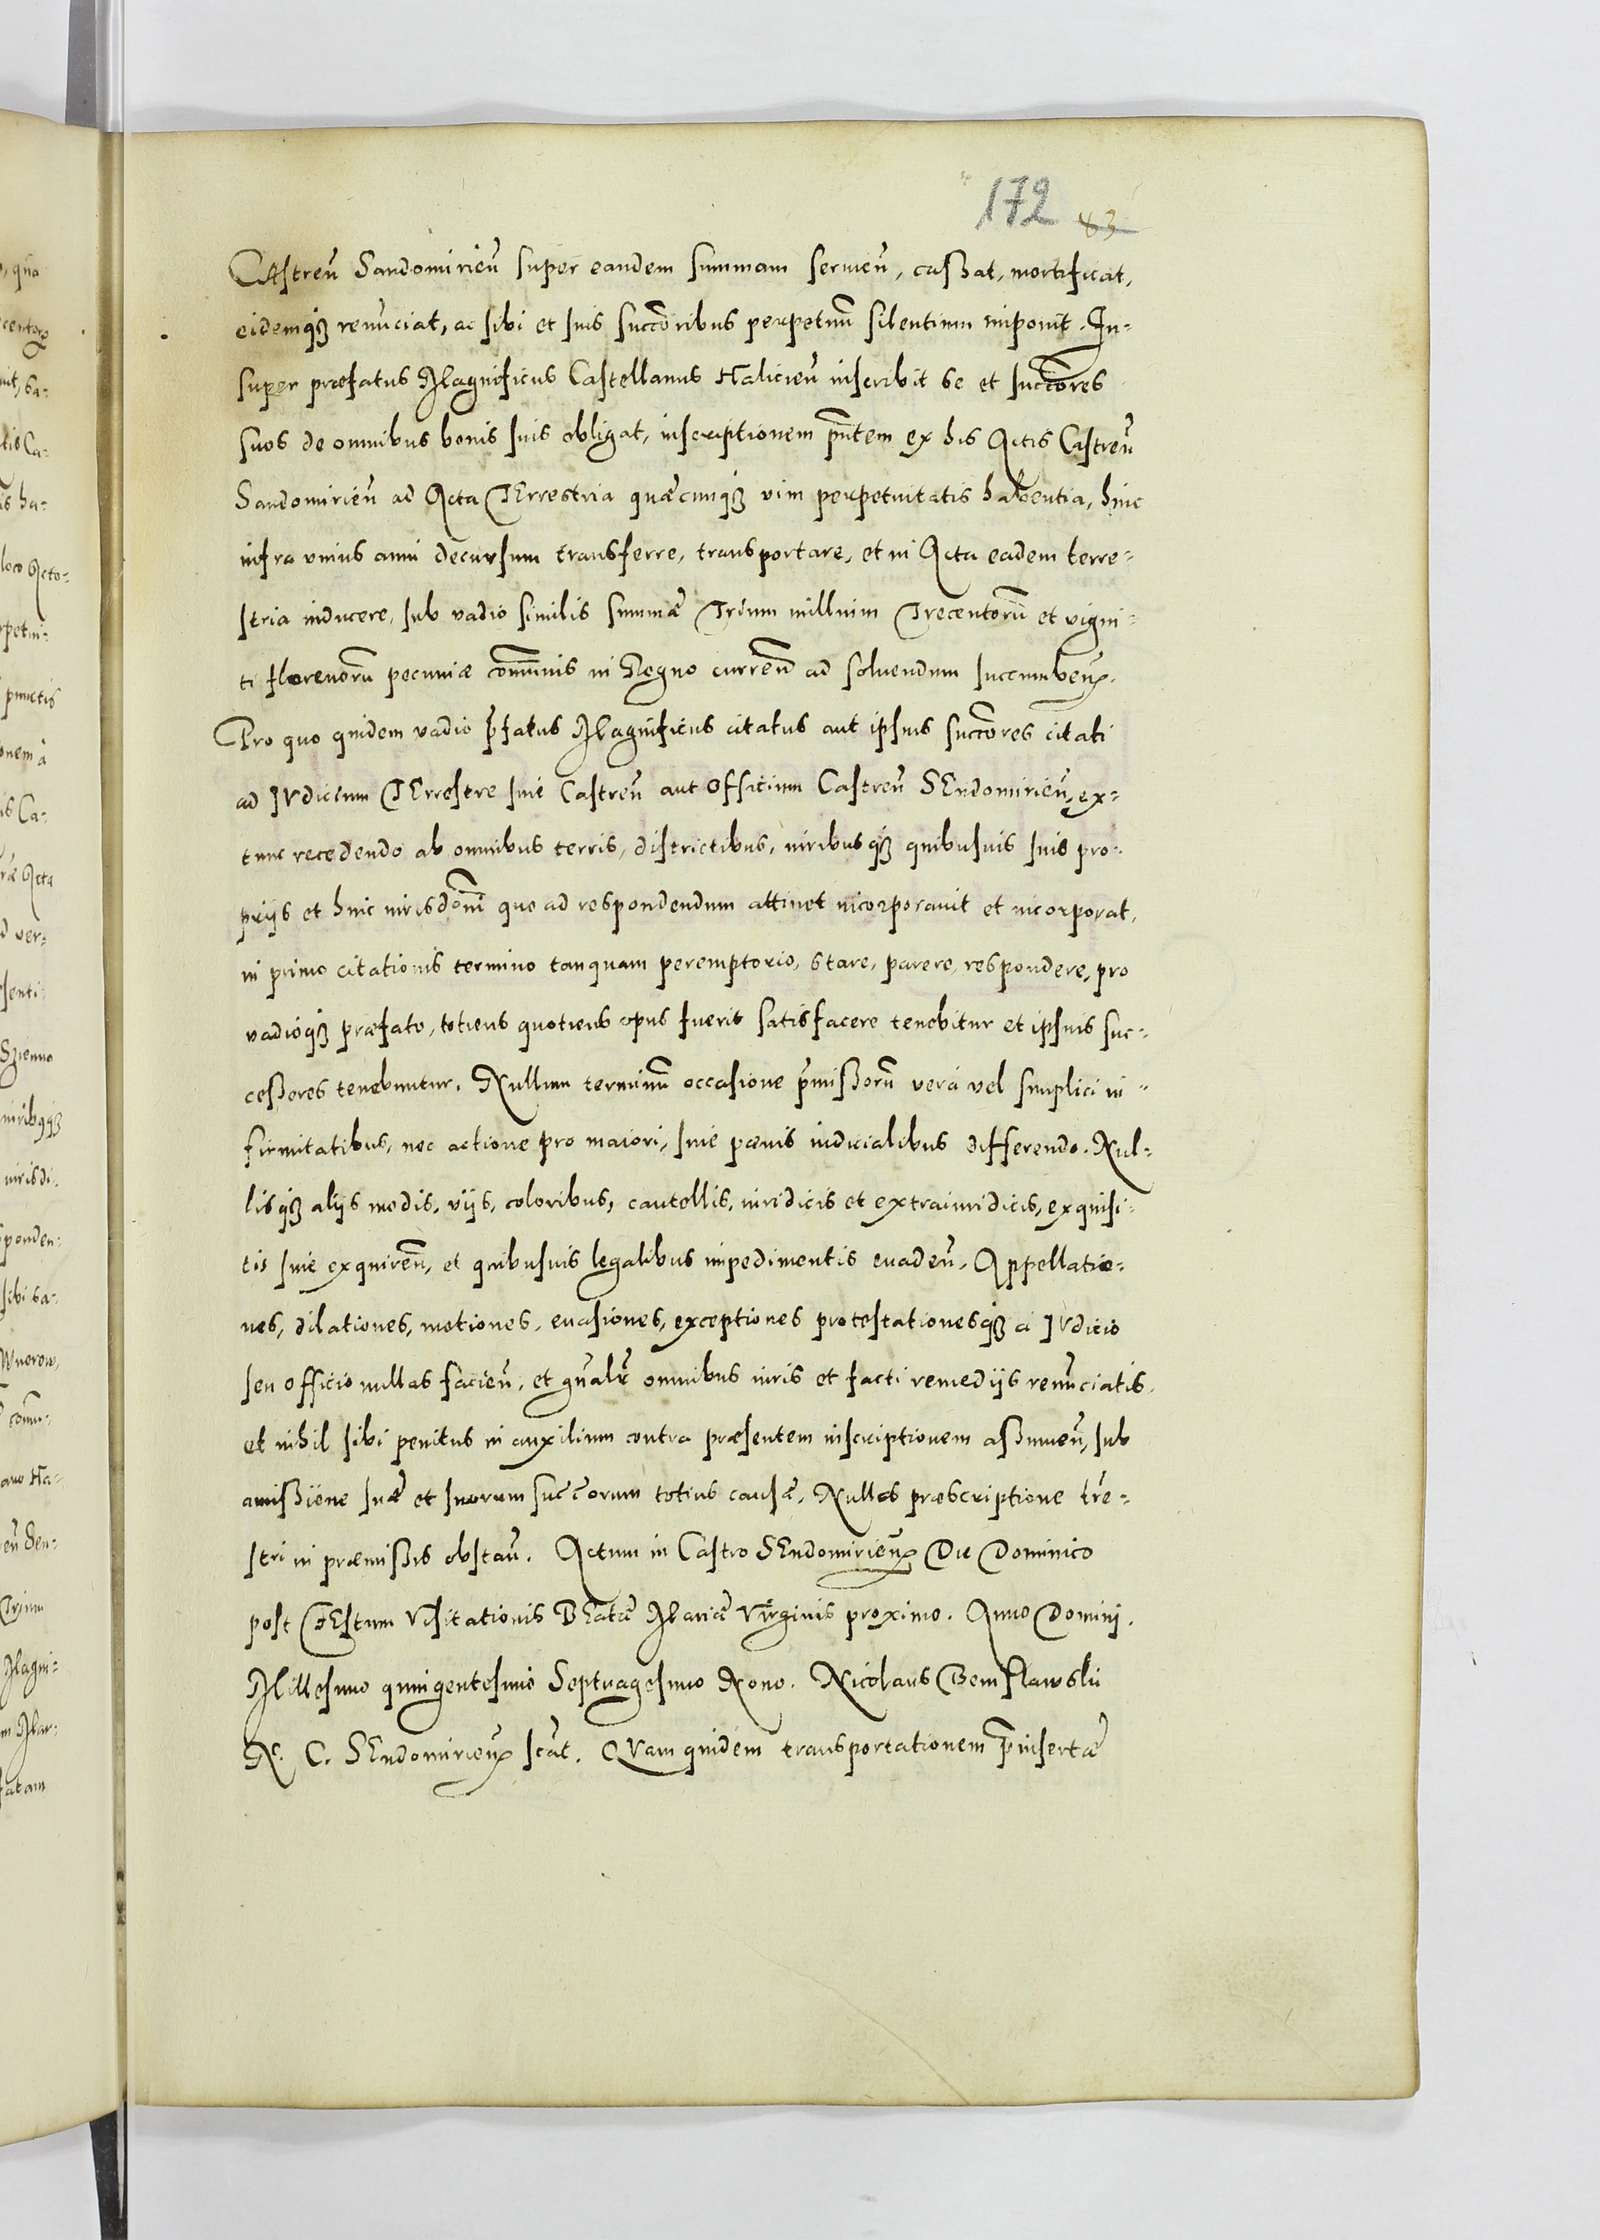 172 83
CAstren̄ Sandomirien̄ super eandem summam seruien̄, caßat, mortificat,
eidemqз renūciat, ac sibi et suis succōribus perpetuū silentium imponit. In=
super præfatus Magnificus Castellanus Halicien̄ inscribit se et succōres
suos de omnibus bonis suis obligat, inscriptionem pn̄tem ex his Actis Castren̄
Sandomirien̄ ad Acta TErrestria quæcunqз vim perpetuitatis habentia, hinc
infra vnius anni decursum transferre, transportare, et in Acta eadem terre=
stria inducere, sub vadio similis summæ Trium millium Trecentorū et vigin=
ti florenorū pecuniæ com̄unis in Regno curren̄ ad soluendum succumben̄.
Pro quo quidem vadio p̄fatus Magnificus citatus aut ipsius succōres citati
ad IVdicium TErrestre siue Castren̄ aut Officium Castren̄ SEndomirien̄, ex=
tunc recedendo ab omnibus terris, districtibus, iuribusqз quibusuis suis pro=
prijs et huic iurisdōni que ad respondendum attinet incorporauit et incorporat,
in primo citationis termino tanquam peremptorio, stare, parere, respondere, pro
vadioqз præfato, totiens quotiens opus fuerit satisfacere tenebitur et ipsius suc=
ceßores tenebuntur. Nullum terminū occasione p̄mißorū vera vel simplici in=
firmitatibus, nec actione pro maiori, siue pœnis iudicialibus differendo. Nul=
lisqз alijs modis, vijs, coloribus, cautellis, iuridicis et extraiuridicis, exquisi=
tis siue exquiren̄, et quibusuis legalibus impedimentis euaden̄. Appellatio=
nes, dilationes, motiones, euasiones, exceptiones protestationesqз a IVdicio
seu officio nullas facien̄, et gn̄alr̄ omnibus iuris et facti remedijs renūciatis,
et nihil sibi penitus in auxilium contra præsentem inscriptionem aßumen̄, sub
amißione suæ et suorum succ̄orum totius causæ. Nulla præscriptione tr̄e=
stri in præmißis obstan̄. Actum in Castro SEndomirien̄ Die Dominico
post FEstum Visitationis BEatæ Mariæ Virginis proximo. Anno Domini.
Millesimo quingentesimo Septuagesimo Nono. Nicolaus
N. C. SEndomirien̄ sc̄at. QVam quidem transportationem p̄insertæ